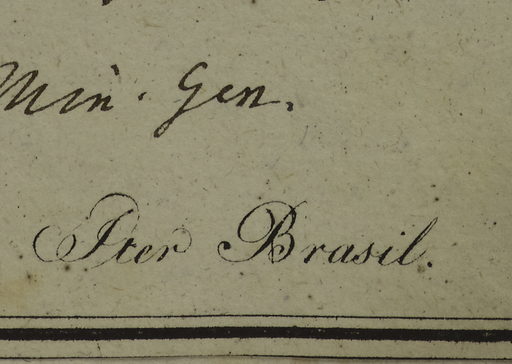 Min. Gen.
Iter Brasil.